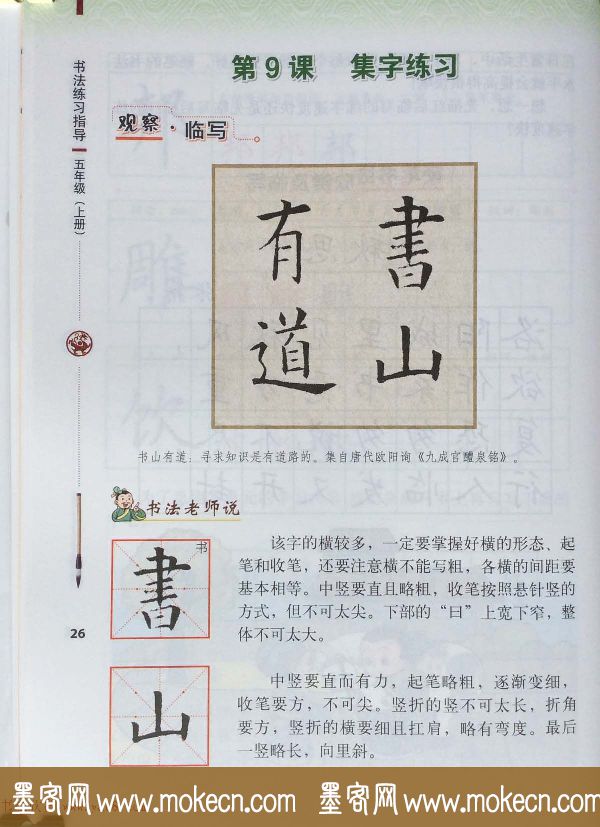 第9课 集字练习
观察·临写
書山
有道
书山有道：寻求知识是有道路的。集自唐代欧阳询《九成宫醴泉铭》。
书法老师说
書
书
该字的横较多，一定要掌握好横的形态、起
笔和收笔，还要注意横不能写粗，各横的间距要
基本相等。中竖要直且略粗，收笔按照悬针竖的
方式，但不可太尖。下部的“曰”上宽下窄，整
体不可太大。
山
中竖要直而有力，起笔略粗，逐渐变细，
收笔要方，不可尖。竖折的竖不可太长，折角
要方，竖折的横要细且扛肩，略有弯度。最后
一竖略长，向里斜。
书法练习指导
五年级（上册）
26
墨客网 www.mokecn.com 墨客网 www.mokecn.com